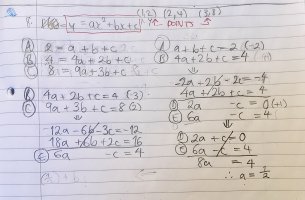 (1,2) (2,4) (3,8)
8. y = ax² + bx + c POINTS
Ⓐ 2 = a + b + c
Ⓑ 4 = 4a + 2b + c
Ⓒ 8 = 9a + 3b + c
Ⓐ a + b + c = 2 (-2)
Ⓑ 4a + 2b + c = 4
-2a - 2b - 2c = -4
4a + 2b + c = 4
Ⓓ 2a - c = 0
Ⓑ 4a + 2b + c = 4 (-3)
Ⓒ 9a + 3b + c = 8 (2)
-12a - 6b - 3c = -12
18a + 6b + 2c = 16
Ⓔ 6a - c = 4
Ⓔ 6a - c = 4
Ⓓ 2a + c = 0
Ⓔ 6a - c = 4
8a = 4
∴ a = 1/2